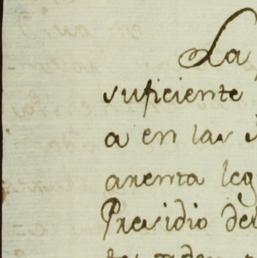 La
suficiente
a en las
arenta leg
Presidio del